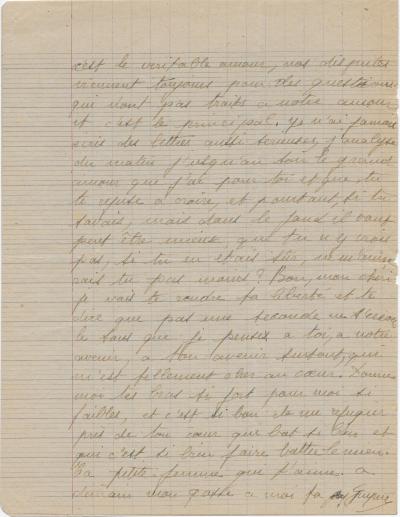 c'est le veritable amour, nos disputes
viennent toujours pour des questions
qui n'ont pas traits a notre amour
et c'est le principal. Je n'ai jamais
ecris des lettres aussi serieuses, j'analyse
du matin jusqu'au soir le grand
amour que j'ai pour toi et que tu
te refuse a croire, et pourtant si tu
savais, mais dans le fond il vaut
peut être mieux que tu n'y crois
pas, si tu en etais sûr, m'aime-
rais tu pas moins? Bon, mon chéri
je vais te rendre ta liberté et te
dire que pas une seconde ne
sans que je pense a toi, a notre
avenir, a ton avenir surtout, qui
m'est tellement cher au cœur. Donne
moi tes bras si fort pour moi si
faibles, et c'est si bon de me refugier
près de ton cœur que bat si bien et
qui c'est si bien faire battre le mien.
Ta petite femme que t'aime. a
demain mon a moi ta